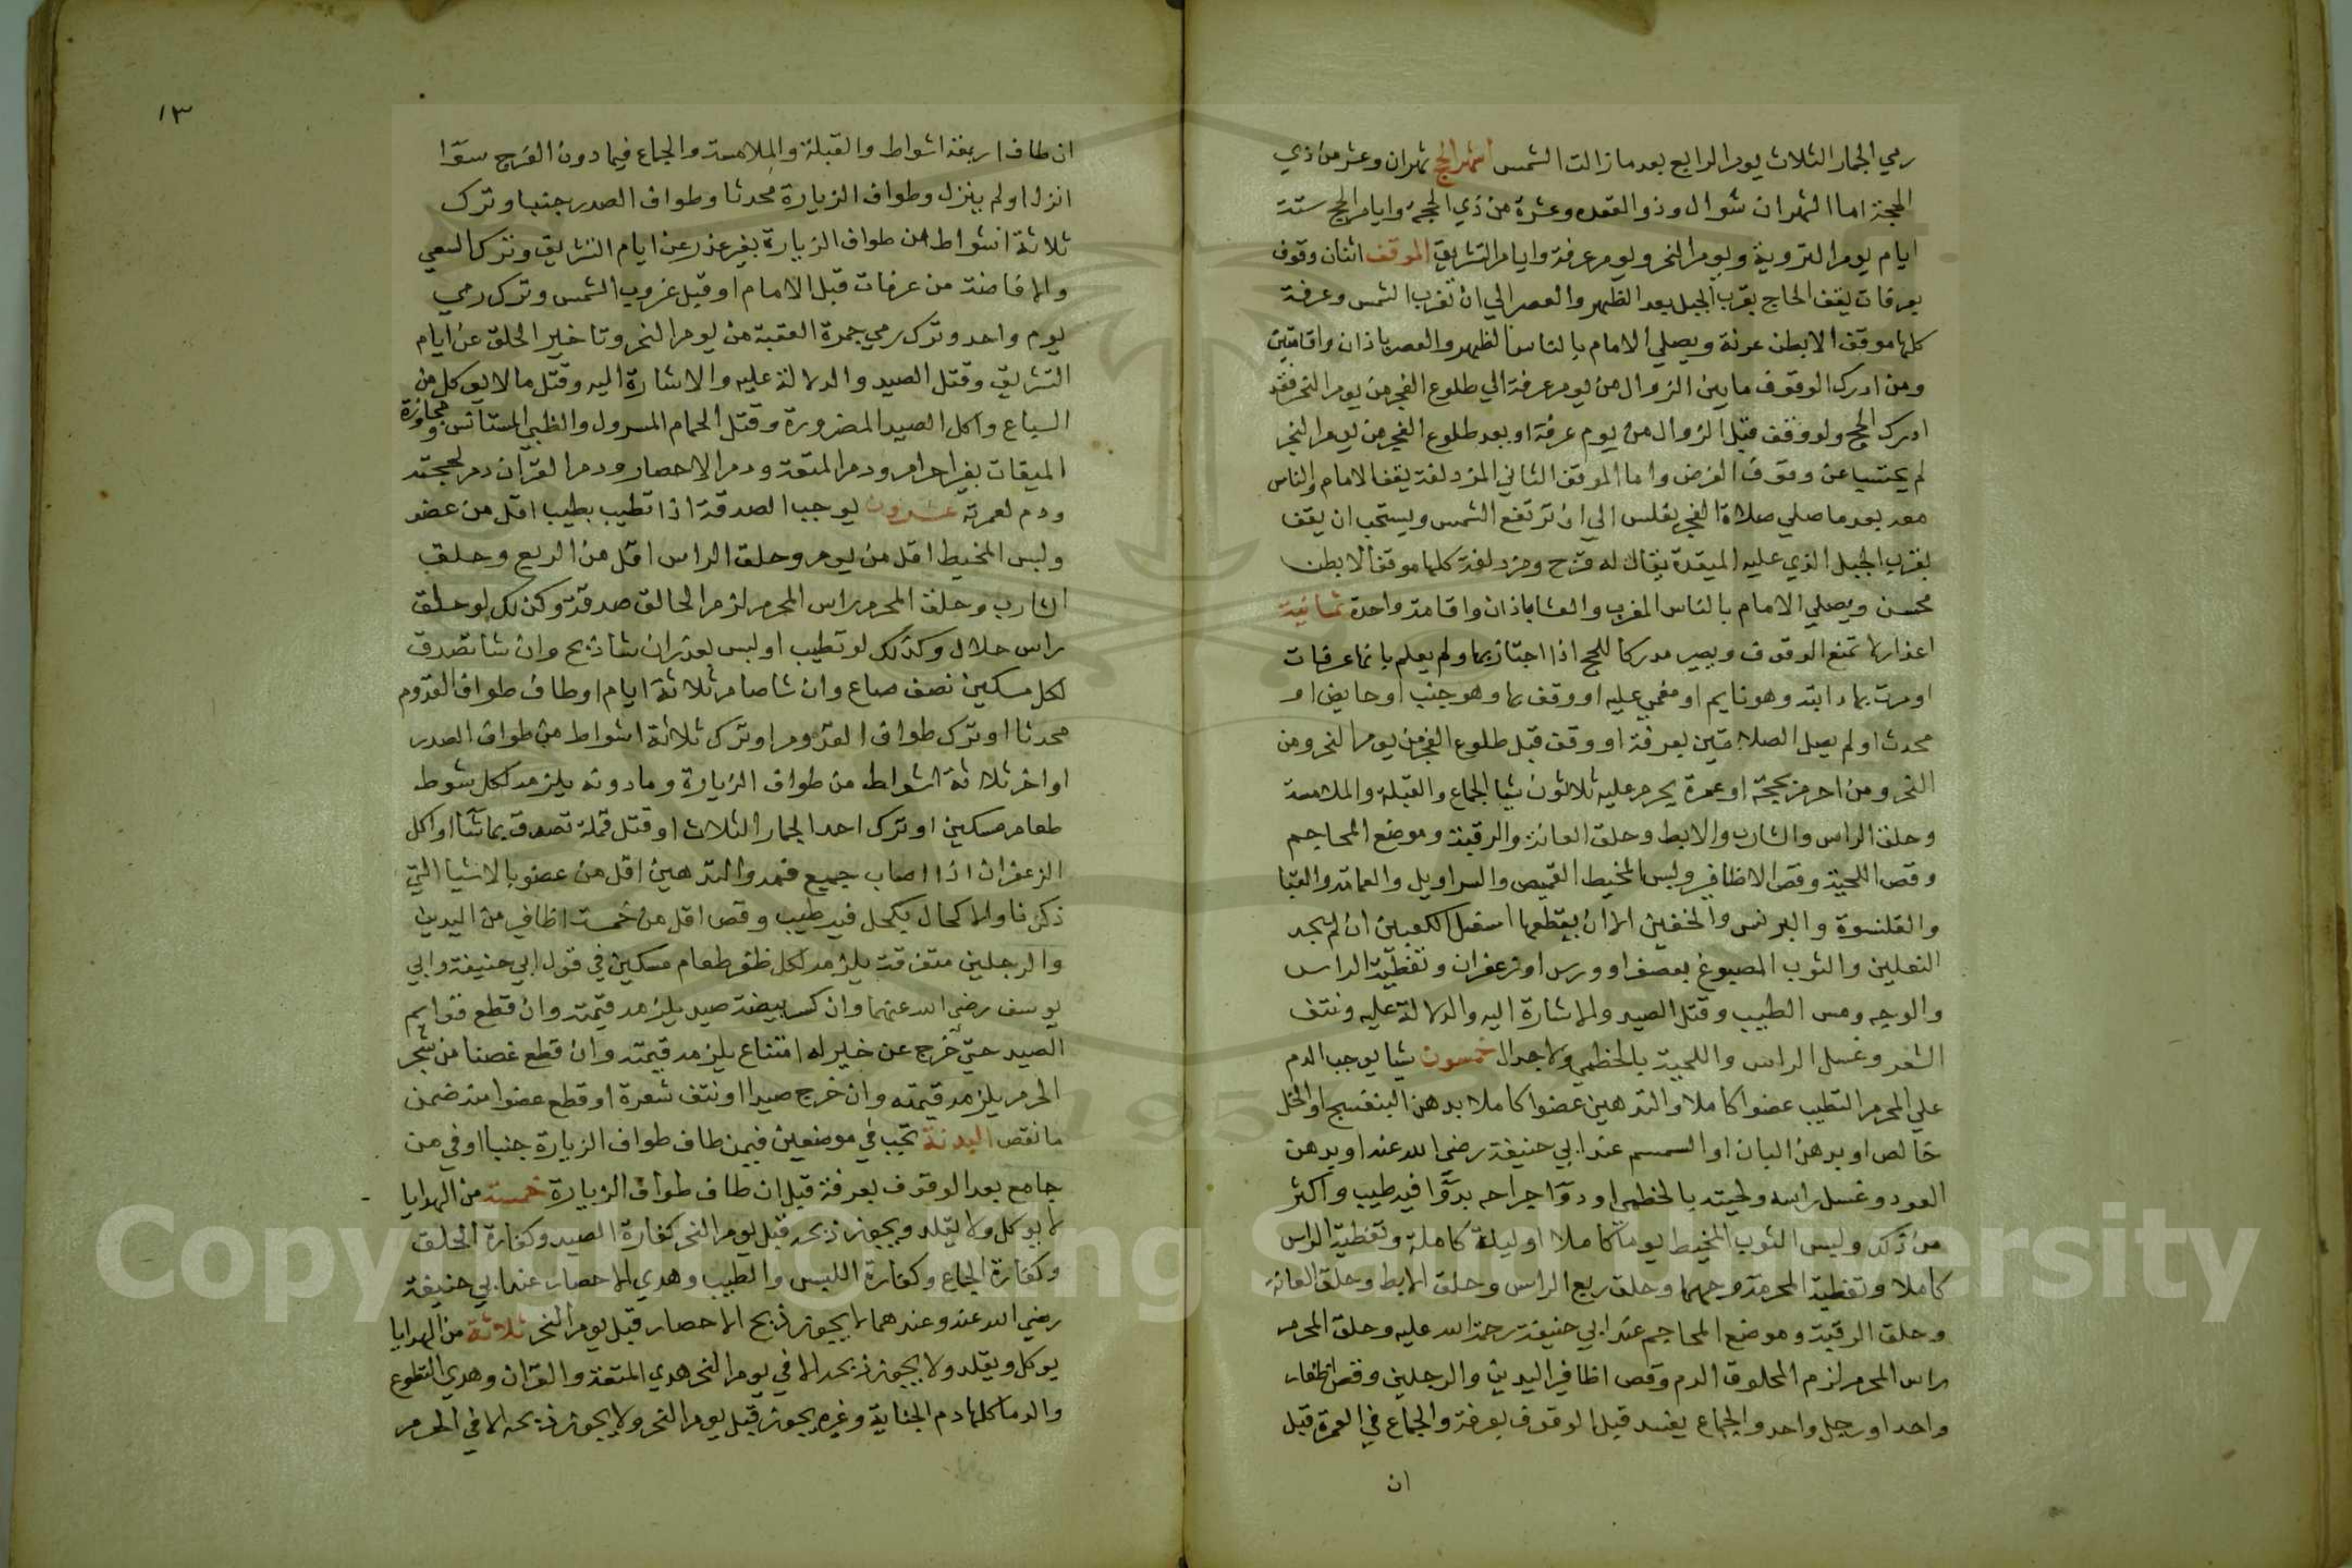 رمي الجمار الثلاث يوم الرابع بعد ما زالت الشمس اشهر الحج شهران وعشر من ذي
الحجة اما الشهران شوال وذو القعده وعشرة من ذي الحجة وايام الحج ستة
ايام يوم التروية ويوم النحر ويوم عرفة وايام التشريق الموقف اثنان وقوف
بعرفات يقف الحاج بقرب الجبل بعد الظهر والعصر الي ان تغرب الشمس وعرفة
كلها موقف الا بطن عرنة ويصلي الامام بالناس الظهر والعصر باذان واقامتين
ومن ادرك الوقوف ما بين الزوال من يوم عرفة الي طلوع الفجر من يوم النحر فقد
ادرك الحج ولو وقف قبل الزوال من يوم عرفة او بعد طلوع الفجر من يوم النحر
لم يحتسبا عن وقوف الفرض واما الموقف الثاني المزدلفة يقف الامام والناس
معه بعد ما صلي صلاة الفجر بغلس الي ان ترتفع الشمس ويستحب ان يقف
بقرب الجبل الذي عليه الميقدة يقال له قزح ومزدلفة كلها موقف الا بطن
محسن ويصلي الامام بالناس المغرب والعشا باذان واقامة واحدة ثمانية
اعذار لا تمنع الوقوف ويصير مدركا للحج اذا اجتاز بها ولم يعلم بانها عرفات
او مرت بها دابته وهو نايم او مغمي عليه او وقف بها وهو جنب او حايض او
محدث او لم يصل الصلاتين بعرفة او وقف قبل طلوع الفجر من يوم النحر ومن
النحر ومن احرم بحجة او عمرة يحرم عليه ثلاثون شيا الجماع والقبلة والملامسة
وحلق الراس والشارب والابط وحلق العانة والرقبة وموضع المحاجم
وقص اللحية وقص الاظافير ولبس المخيط القميص والسراويل والعمامة والقبا
والقلنسوة والبرنس والخفين الا ان يقطعها اسفل الكعبين ان لم يجد
النعلين والثوب المصبوغ بعصفر او ورس او زعفران وتغطية الراس
والوجه ومس الطيب وقتل الصيد والاشارة اليه والدلالة عليه ونتف
الشعر وغسل الراس واللحية بالخطمي ولا جدال خمسون شيا يوجب الدم
علي المحرم التطيب عضوا كاملا والتدهين عضوا كاملا بدهن البنفسج او الخل
خالص او بدهن البان او السمسم عند ابي حنيفة رضي الله عنه او بدهن
العود وغسل راسه ولحيته بالخطمي او دوّا جراحه بدوّا فيه طيب واكثر
من ذلك ولبس الثوب المخيط يوما كاملا او ليلة كاملة وتغطية الراس
كاملا وتغطية المحرمة وجهها وحلق ربع الراس وحلق الابط وحلق العانة
وحلق الرقبة وموضع المحاجم عند ابي حنيفة رحمة الله عليه وحلق المحرم
راس المحرم لزم المحلوق الدم وقص اظافير اليدين والرجلين وقص اظفار
واحد او رجل واحد والجماع يفسد قبل الوقوف بعرفة والجماع في العمرة قبل
ان
١٣
ان طاف اربعة اشواط والقبلة والملامسة والجماع فيما دون الفرج سوّا
انزل او لم ينزل وطواف الزيارة محدثا وطواف الصدر جنبا وترك
ثلاثة اشواط من طواف الزيارة بغير عذر عن ايام التشريق وترك السعي
والافاضة من عرفات قبل الامام او قبل غروب الشمس وترك رمي
يوم واحد وترك رمي جمرة العقبة من يوم النحر وتاخير الحلق عن ايام
التشريق وقتل الصيد والدلالة عليه والاشارة اليه وقتل ما لا يوكل من
السباع واكل الصيد المضرورة وقتل الحمام المسرول والظبي المستانس ومجاوزة
الميقات بغير احرام ودم المتعة ودم الاحصار ودم القران دم لحجته
ودم لعمرته عشرون يوجب الصدقة اذا تطيب بطيب اقل من عضو
ولبس المخيط اقل من يوم وحلق الراس اقل من الربع وحلق
الشارب وحلق المحرم راس المحرم لزم الحالق صدقة وكذلك لو حلق
راس حلال وكذلك لو تطيب او لبس لعذر ان شا ذبح وان شا تصدق
لكل مسكين نصف صاع وان شا صام ثلاثة ايام او طاف طواف القدوم
محدثا او ترك طواف القدوم او ترك ثلاثة اشواط من طواف الصدر
او اخر ثلاثة اشواط من طواف الزيارة وما دونه يلزمه لكل شوط
طعام مسكين او ترك احد الجمار الثلاث او قتل قملة تصدق بما شا او اكل
الزعفران اذا اصاب جميع فمه والتدهين اقل من عضو بالاشيا التي
ذكرنا والاكحال بكحل فيه طيب وقص اقل من خمسة اظافير من اليدين
والرجلين متفرقة يلزمه لكل ظفر طعام مسكين في قول ابي حنيفة وابي
يوسف رضي الله عنهما وان كسر بيضة صيد يلزمه قيمته وان قطع قوايم
الصيد حتي خرج عن خيز له امتناع يلزمه قيمته وان قطع غصنا من شجر
الحرم يلزمه قيمته وان خرج صيدا او نتف شعرة او قطع عضوا منه ضمن
ما نقص البدنة تجب في موضعين فيمن طاف طواف الزيارة جنبا او في من
جامع بعد الوقوف بعرفة قبل ان طاف طواف الزيارة خمسة من الهدايا
لا يوكل ولا يقلد ويجوز ذبحه قبل يوم النحر كفارة الصيد وكفارة الحلق
وكفارة الجماع وكفارة اللبس والطيب وهدي الاحصار عند ابي حنيفة
رضي الله عنه وعندهما لا يجوز ذبح الاحصار قبل يوم النحر ثلاثة من الهدايا
يوكل ويقلد ولا يجوز ذبحه الا في يوم النحر هدي المتعة والقران وهدي التطوع
والدما كلها دم الجناية وغيره يجوز قبل يوم النحر ولا يجوز ذبحه الا في الحرم
Copyright © King Saud University